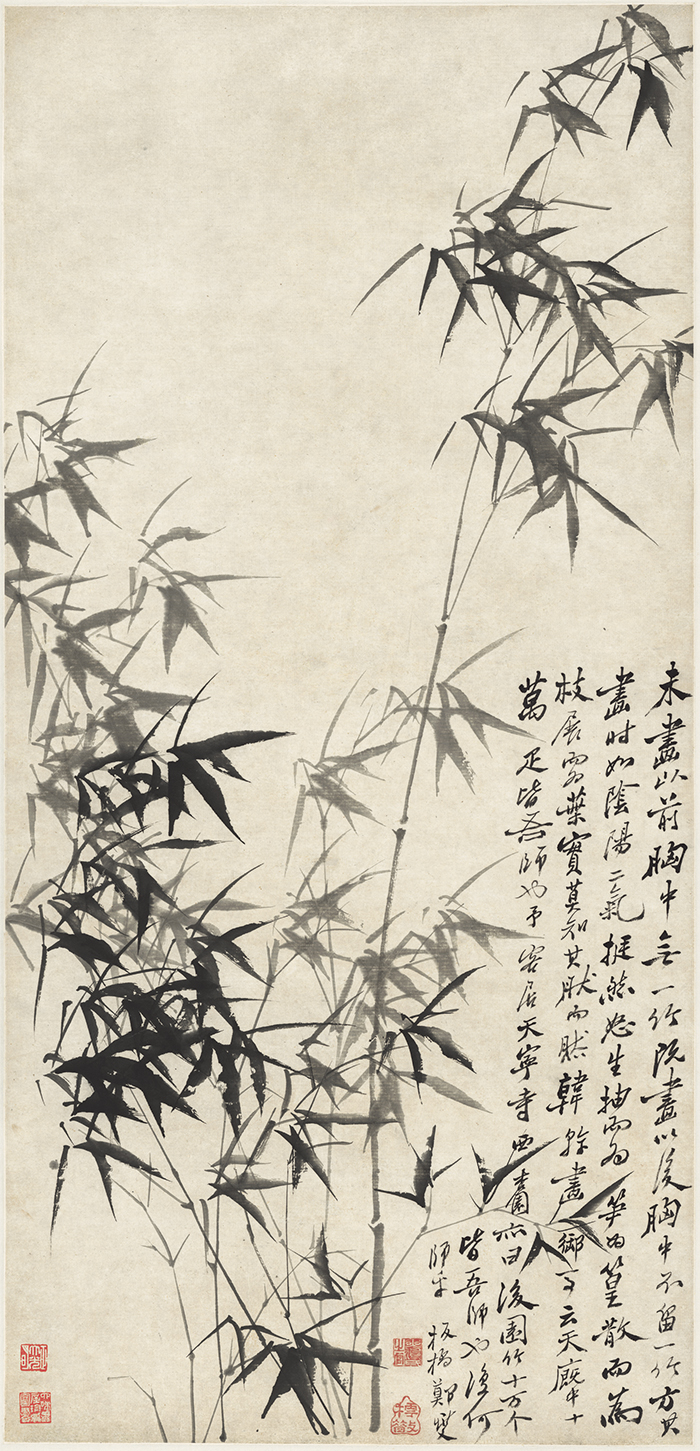 未畫以前胸中無一竹既畫以後胸中不留一竹方其
畫時如陰陽二氣挺然怒生抽而為笋為篁散而為
枝展而為葉實莫知其然而然韓幹畫御馬云天廐中十
萬疋皆吾師也予客居天寧寺西杏園亦曰後園竹十万个
皆吾師也復何
師乎 板橋鄭燮